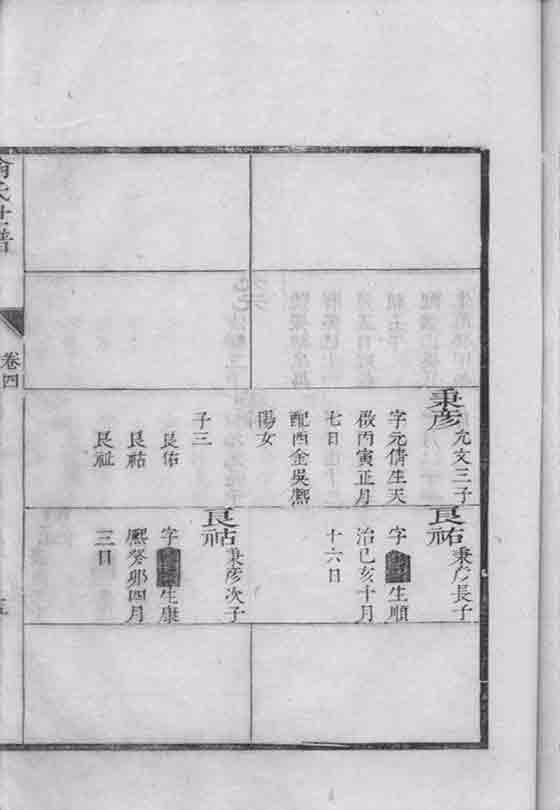 秉彥 允文三子
字元倩生天
啟丙寅正月
七日
配西金吳熈
陽女
子三
良佑
良祜
良祉
良祐 秉彥長子
字 生順
治己亥十月
十六日
良祜 秉彥次子
字 生康
熈癸卯四月
三日
氏世譜
卷四